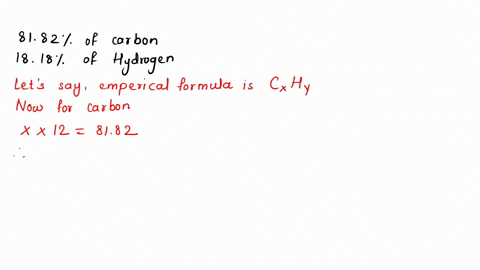 81.82% of carbon
18.18% of Hydrogen
Let's say, emperical formula is CxHy
Now for carbon
x x 12 = 81.82
∴